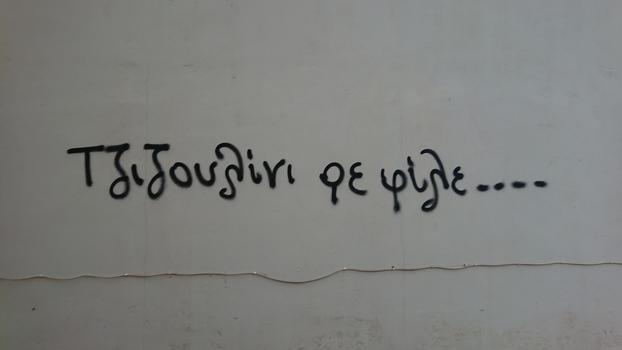 Τζιζουλίνι ρε φίλε....